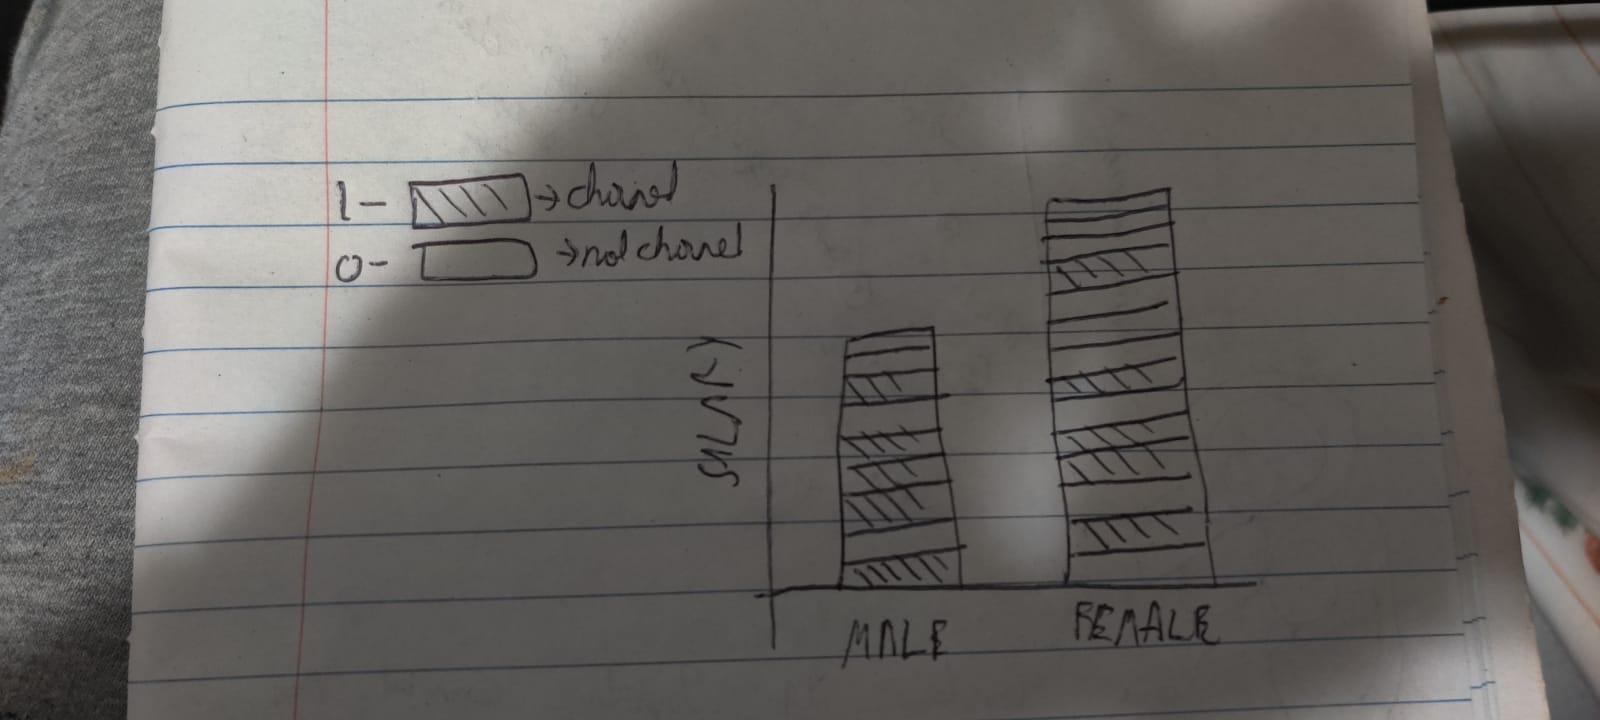 1- → chaired
0- → not chaired
SALARY
MALE
FEMALE